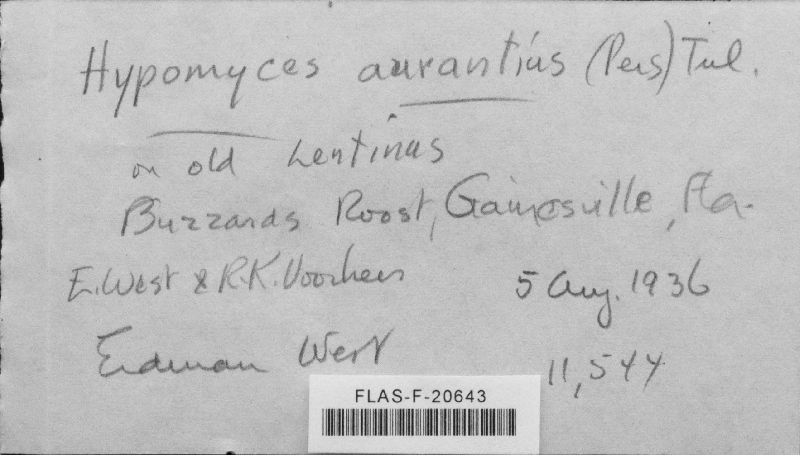 Hypomyces aurantius (Pers) Tul.
on old Lentinus
Buzzards Roost, Gainesville, Fla.
E. West & R.K. Voorhees
5 Aug. 1936
Erdman West
11,544
FLAS-F-20643